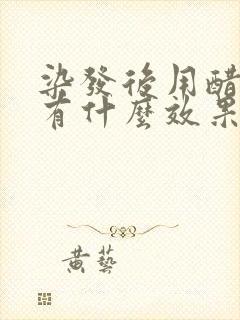 染發後用醋
有什麼效果
黃藝